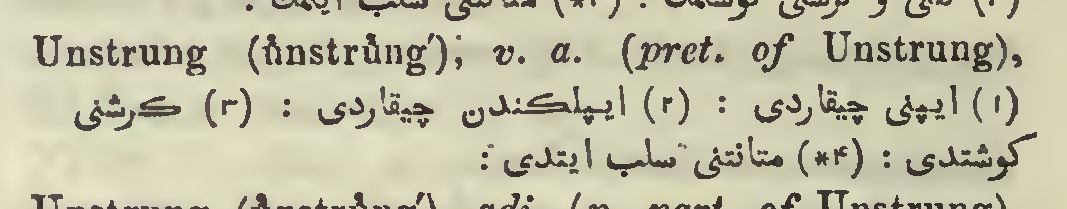 Unstrung (ŭnstrŭng′); v. a. (pret. of Unstrung),
(۱) ایپنی چیقاردی : (۲) ایپلکندن چیقاردی : (۳) کرشنی
کوشتدی : (*۴) متانتنی سلب ایتدی :